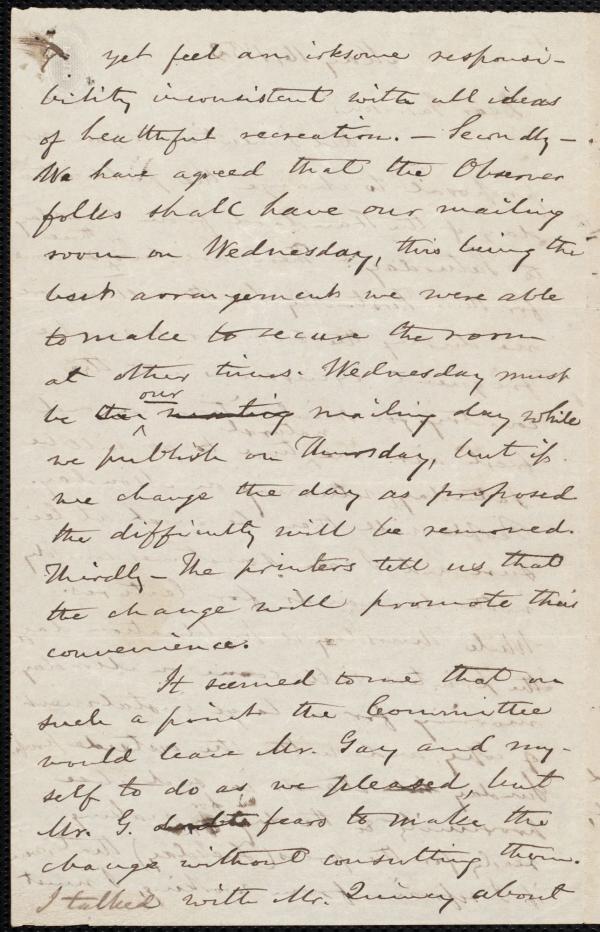 yet feel an irksome responsi-
bility inconsistent with all ideas
of healthful recreation. — Secondly —
We have agreed that the Observer
folks shall have our mailing
room on Wednesday, this being the
best arrangement we were able
to make to secure the room
at other times. Wednesday must
our
be mailing day while
we publish on Thursday, but if
we change the day as proposed
the difficulty will be removed.
Thirdly — The printers tell us that
the change will promote their
convenience.
It seemed to me that on
such a point the Committee
would leave Mr. Gay and my-
self to do as we pleased, but
Mr. G. fears to make the
change without consulting them.
I talked with Mr. Quincy about